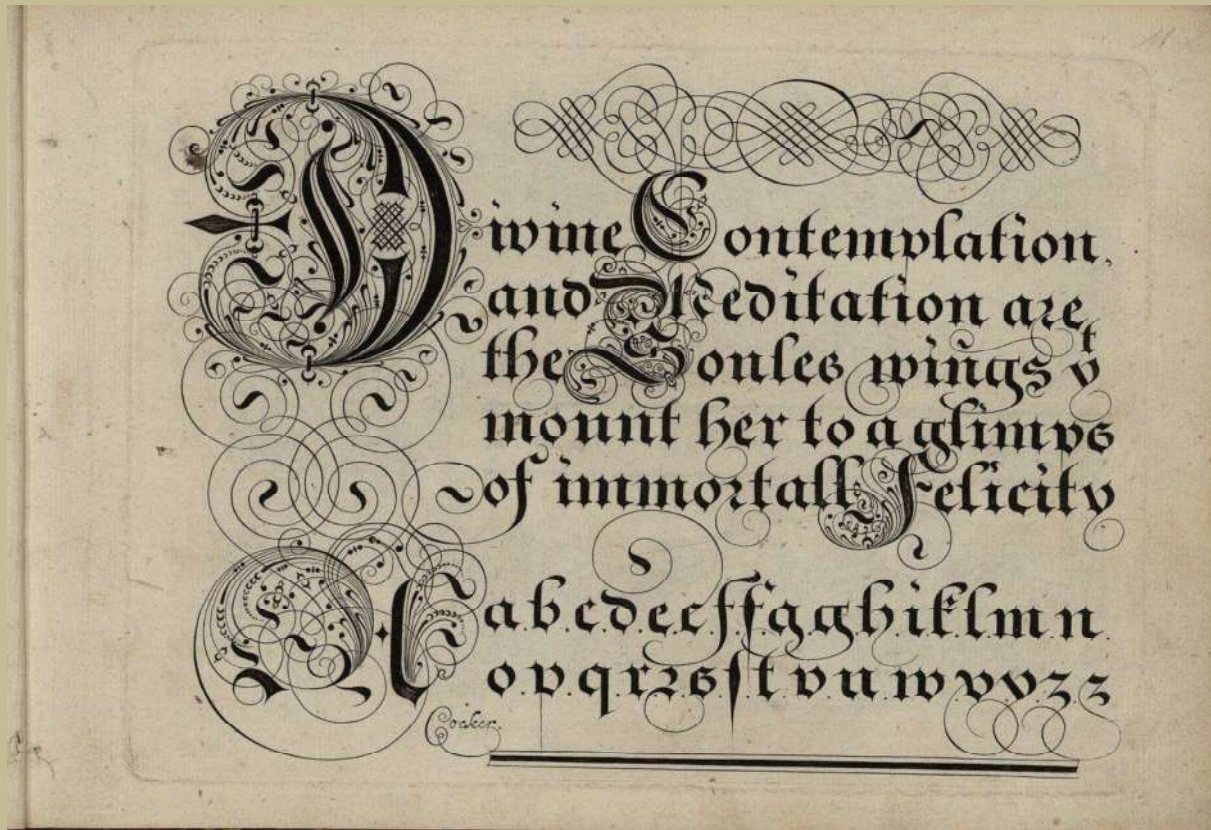 Divine Contemplation,
and Meditation are
the Soules wings yt
mount her to a glimps
of immortall Felicity
A a.b.c.d.e.e.f.f.g.g.h.i.k.l.m.n.
o.p.q.r.r.s.s.t.v.u.w.x.y.z.z
Cocker.